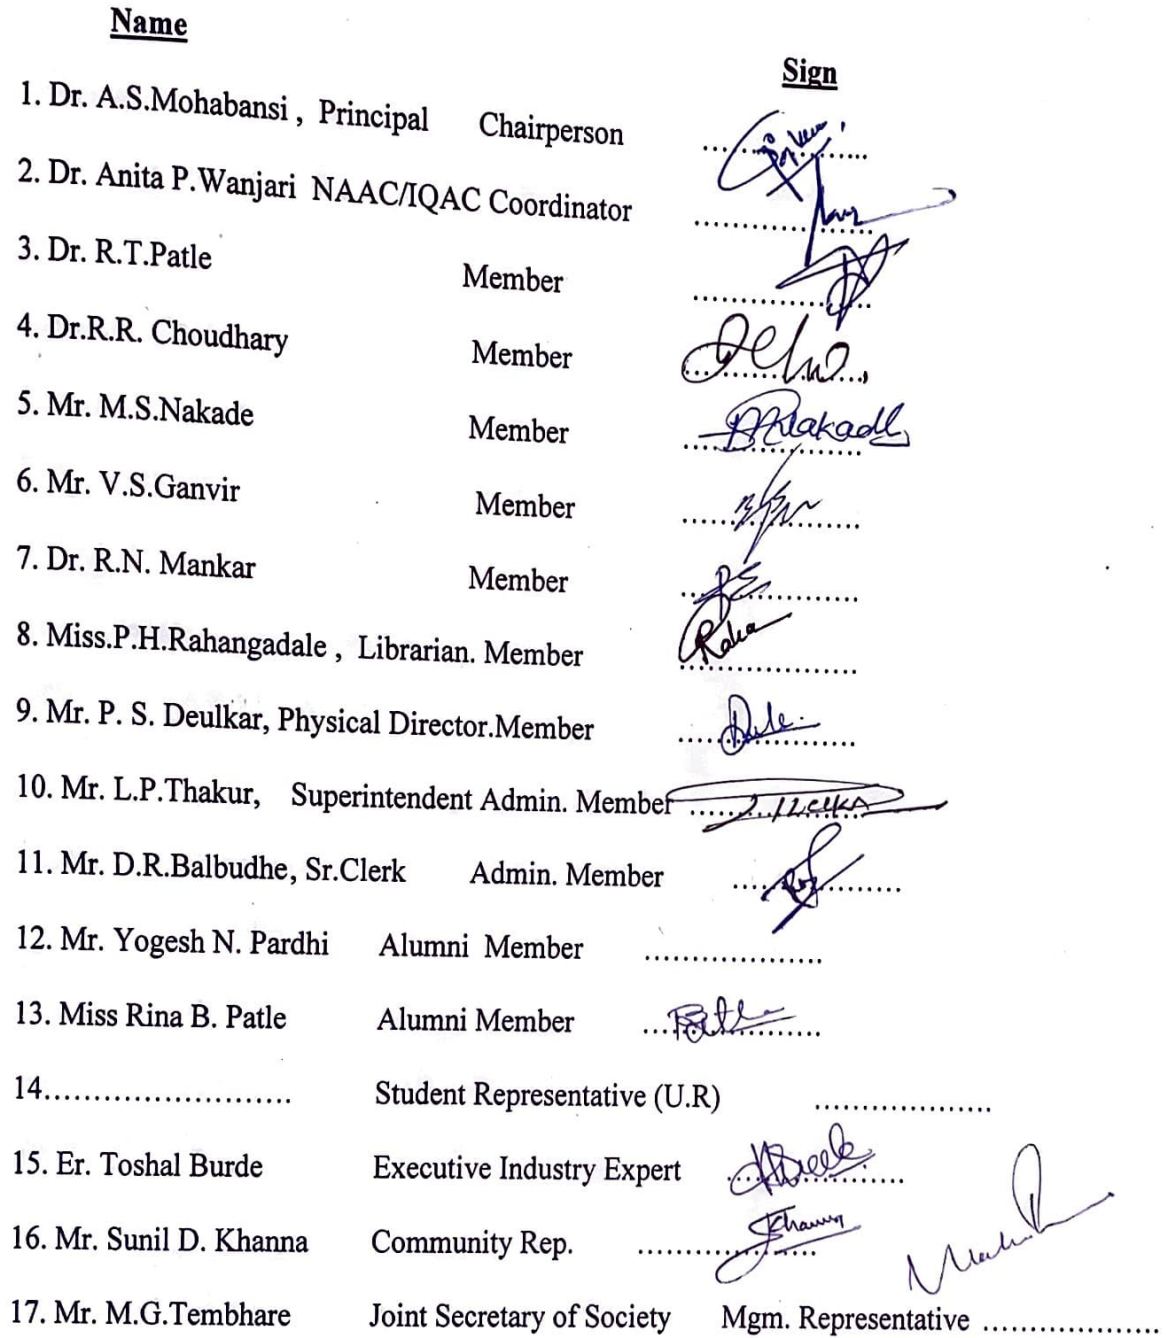 Name
Sign
1. Dr. A.S.Mohabansi , Principal Chairperson ....................
2. Dr. Anita P.Wanjari NAAC/IQAC Coordinator ....................
3. Dr. R.T.Patle Member ....................
4. Dr.R.R. Choudhary Member ....................
5. Mr. M.S.Nakade Member ....................
6. Mr. V.S.Ganvir Member ....................
7. Dr. R.N. Mankar Member ....................
8. Miss.P.H.Rahangadale , Librarian. Member ....................
9. Mr. P. S. Deulkar, Physical Director.Member ....................
10. Mr. L.P.Thakur, Superintendent Admin. Member ....................
11. Mr. D.R.Balbudhe, Sr.Clerk Admin. Member ....................
12. Mr. Yogesh N. Pardhi Alumni Member ....................
13. Miss Rina B. Patle Alumni Member ....................
14......................... Student Representative (U.R) ....................
15. Er. Toshal Burde Executive Industry Expert ....................
16. Mr. Sunil D. Khanna Community Rep. ....................
17. Mr. M.G.Tembhare Joint Secretary of Society Mgm. Representative ....................